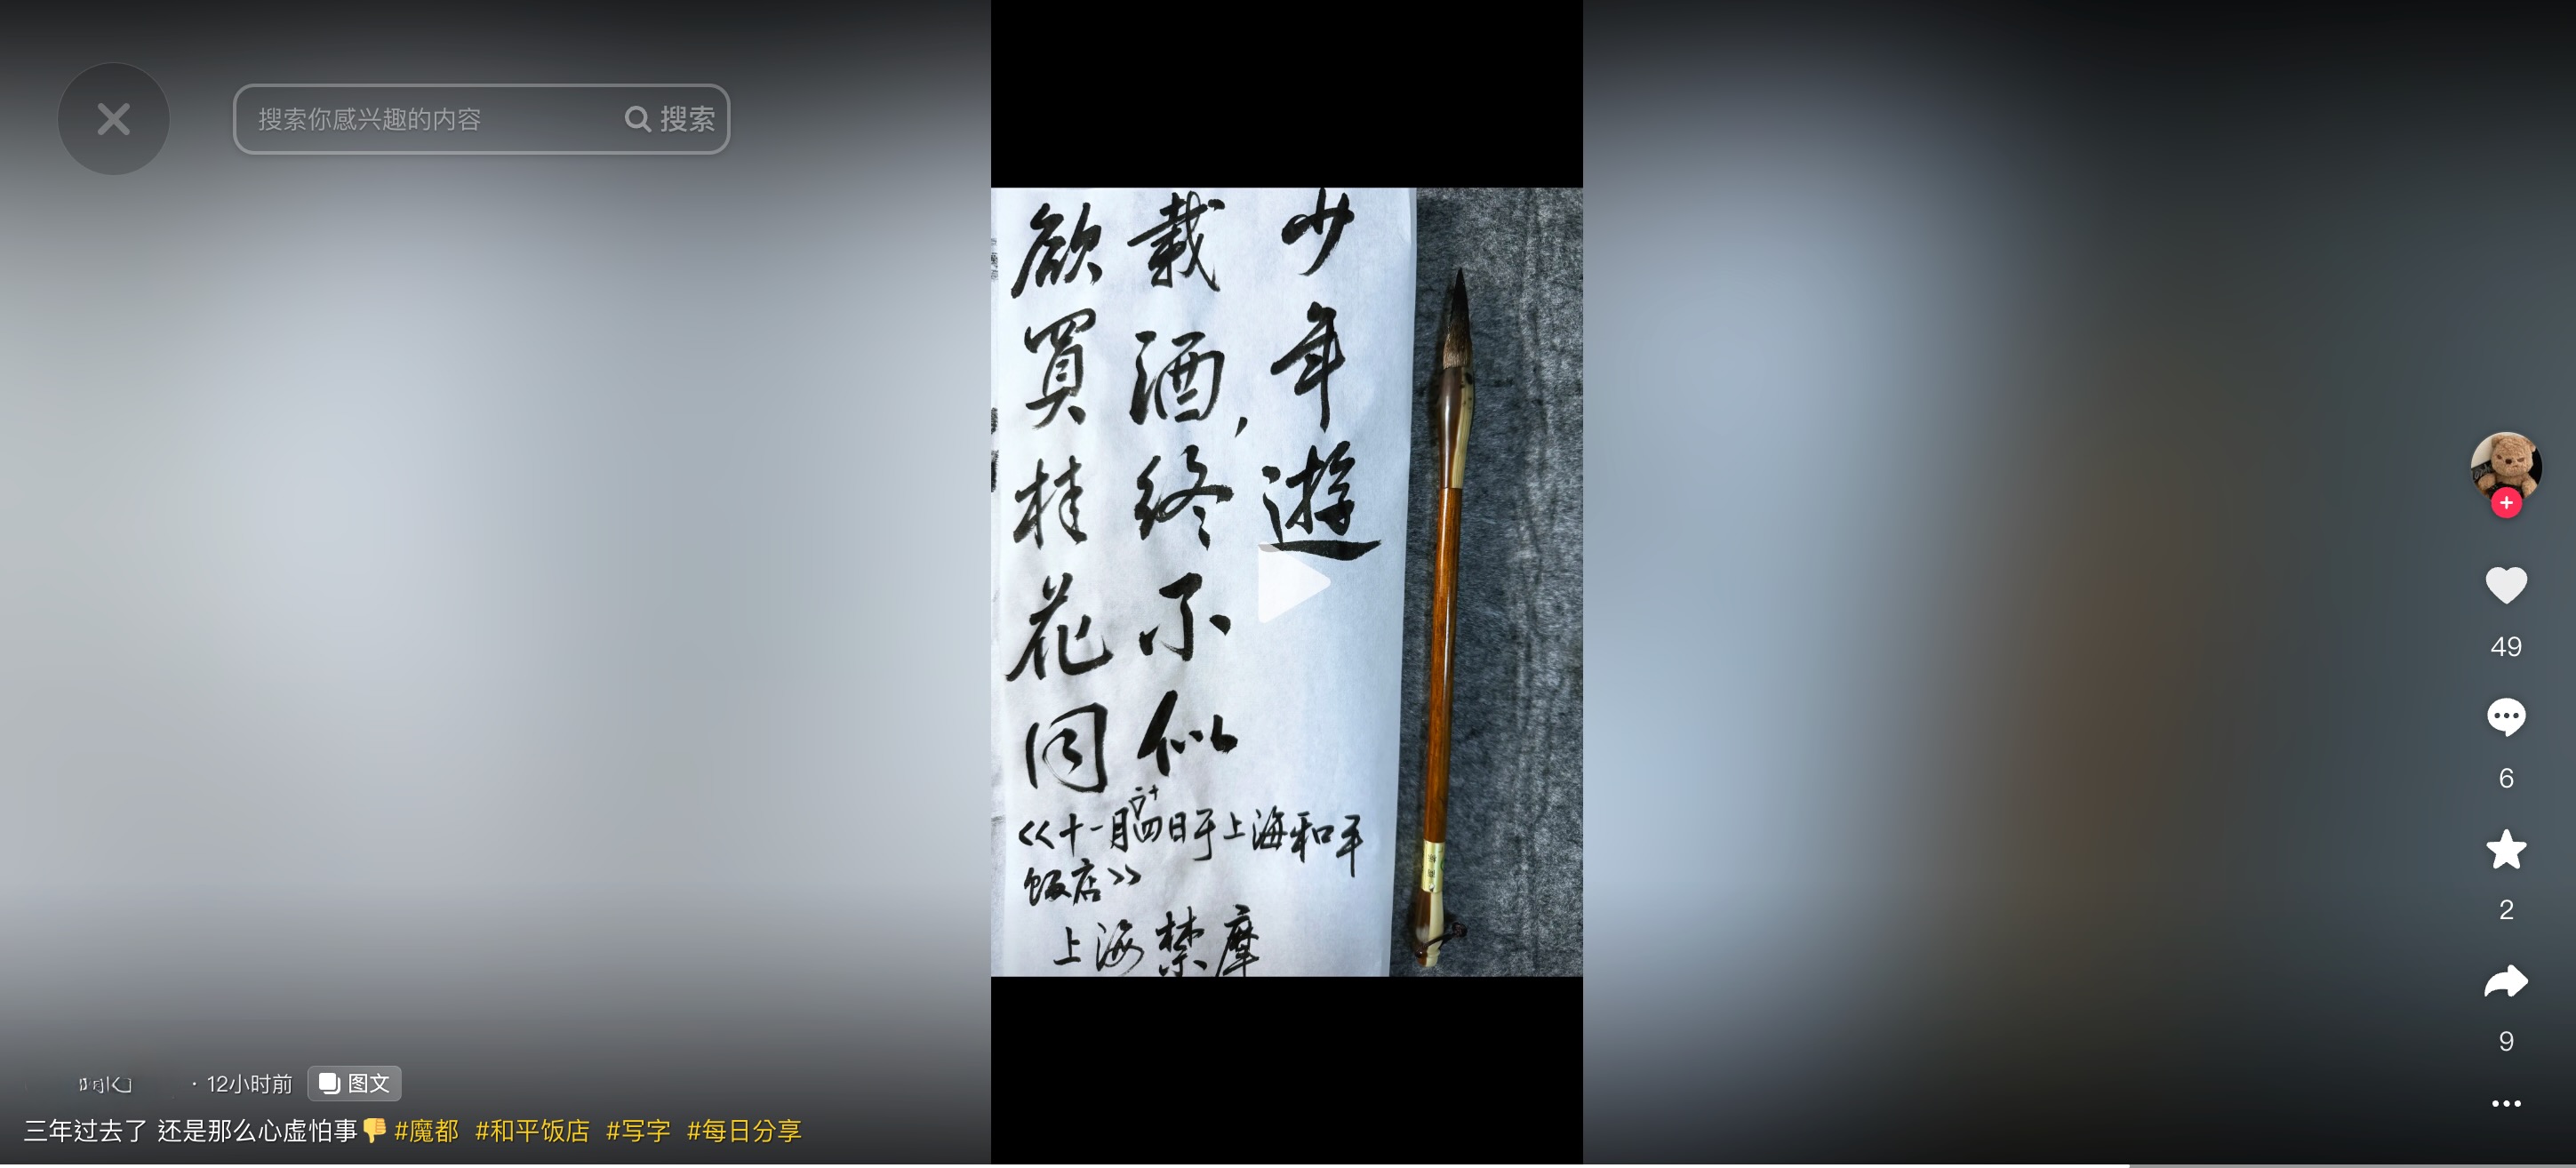 搜索你感兴趣的内容
搜索
少年遊
載酒,終不似
欲買桂花同
<<十一月廿四日于上海和平
饭店>>
上海禁摩
49
6
2
9
· 12小时前
图文
三年过去了 还是那么心虚怕事👎#魔都 #和平饭店 #写字 #每日分享